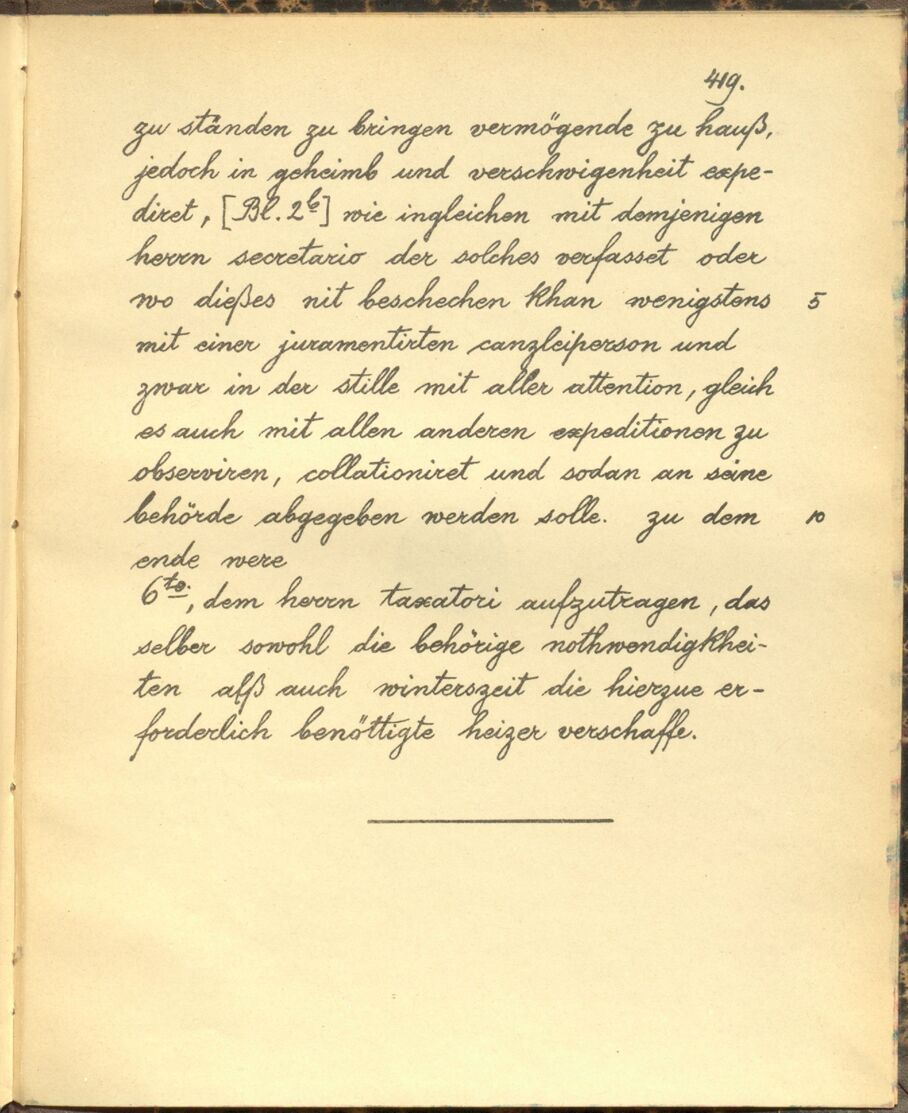 419.
zu ständen zu bringen vermögende zu hauß,
jedoch in geheimb und verschwigenheit expe-
diret, [Bl. 2b] wie ingleichen mit demjenigen
herrn secretario der solches verfasset oder
wo dießes nit beschechen khan wenigstens 5
mit einer juramentirten canzleiperson und
zwar in der stille mit aller attention, gleich
es auch mit allen anderen expeditionen zu
observiren, collationiret und sodan an seine
behörde abgegeben werden solle. zu dem 10
ende were
6to., dem herrn taxatori aufzutragen, das
selber sowohl die behörige nothwendigkhei-
ten alß auch winterszeit die hierzue er-
forderlich benöttigte heizer verschaffe.